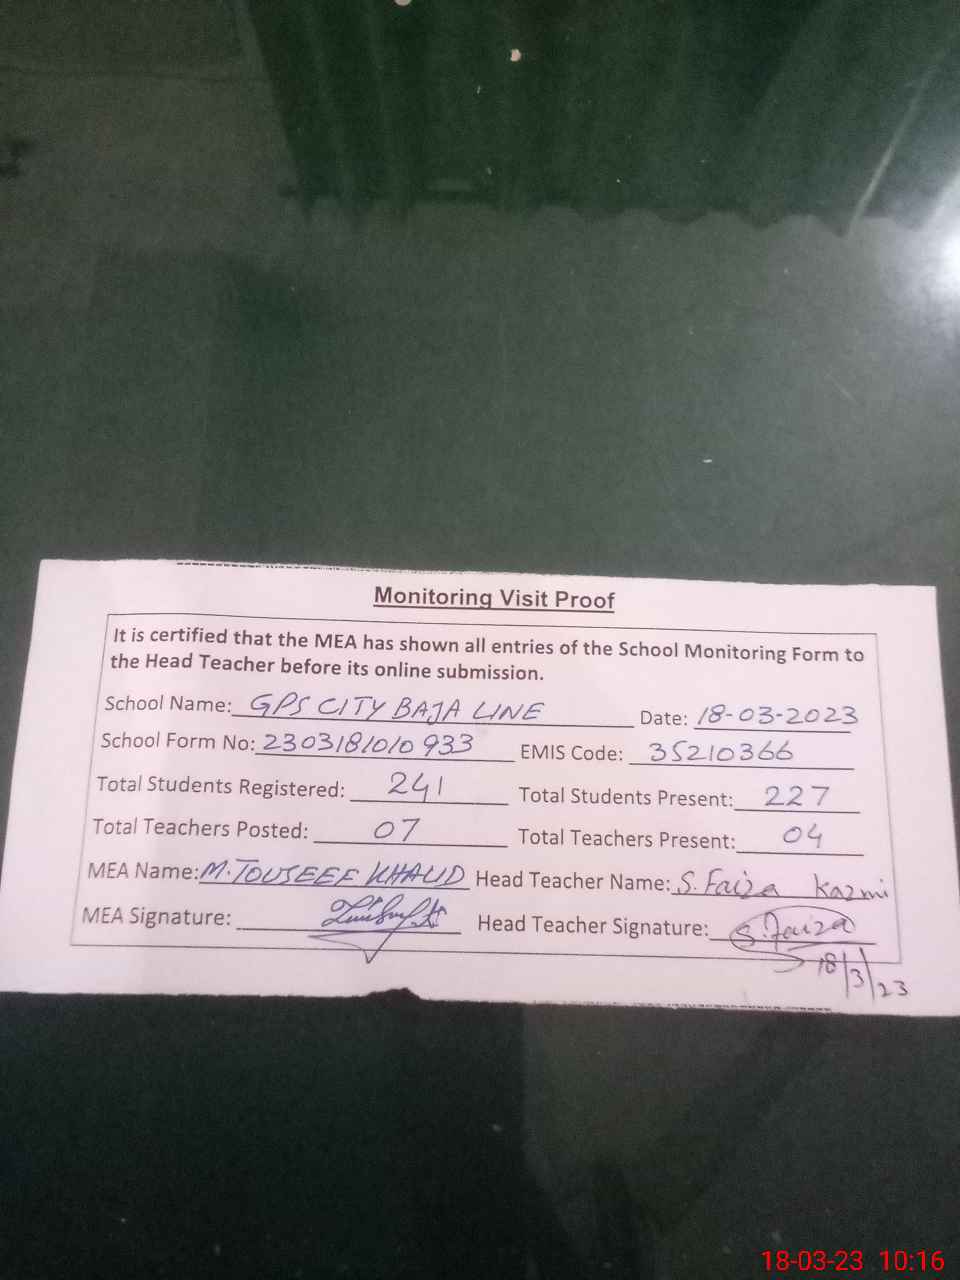 Monitoring Visit Proof
It is certified that the MEA has shown all entries of the School Monitoring Form to
the Head Teacher before its online submission.
School Name: GPS CITY BAJA LINE Date: 18-03-2023
School Form No: 2303181010933 EMIS Code: 35210366
Total Students Registered: 241 Total Students Present: 227
Total Teachers Posted: 07 Total Teachers Present: 04
MEA Name: M. TOUSEEF KHALID Head Teacher Name: S. Faiza Kazmi
MEA Signature: Head Teacher Signature: S. Faiza
18/3/23
18-03-23 10:16